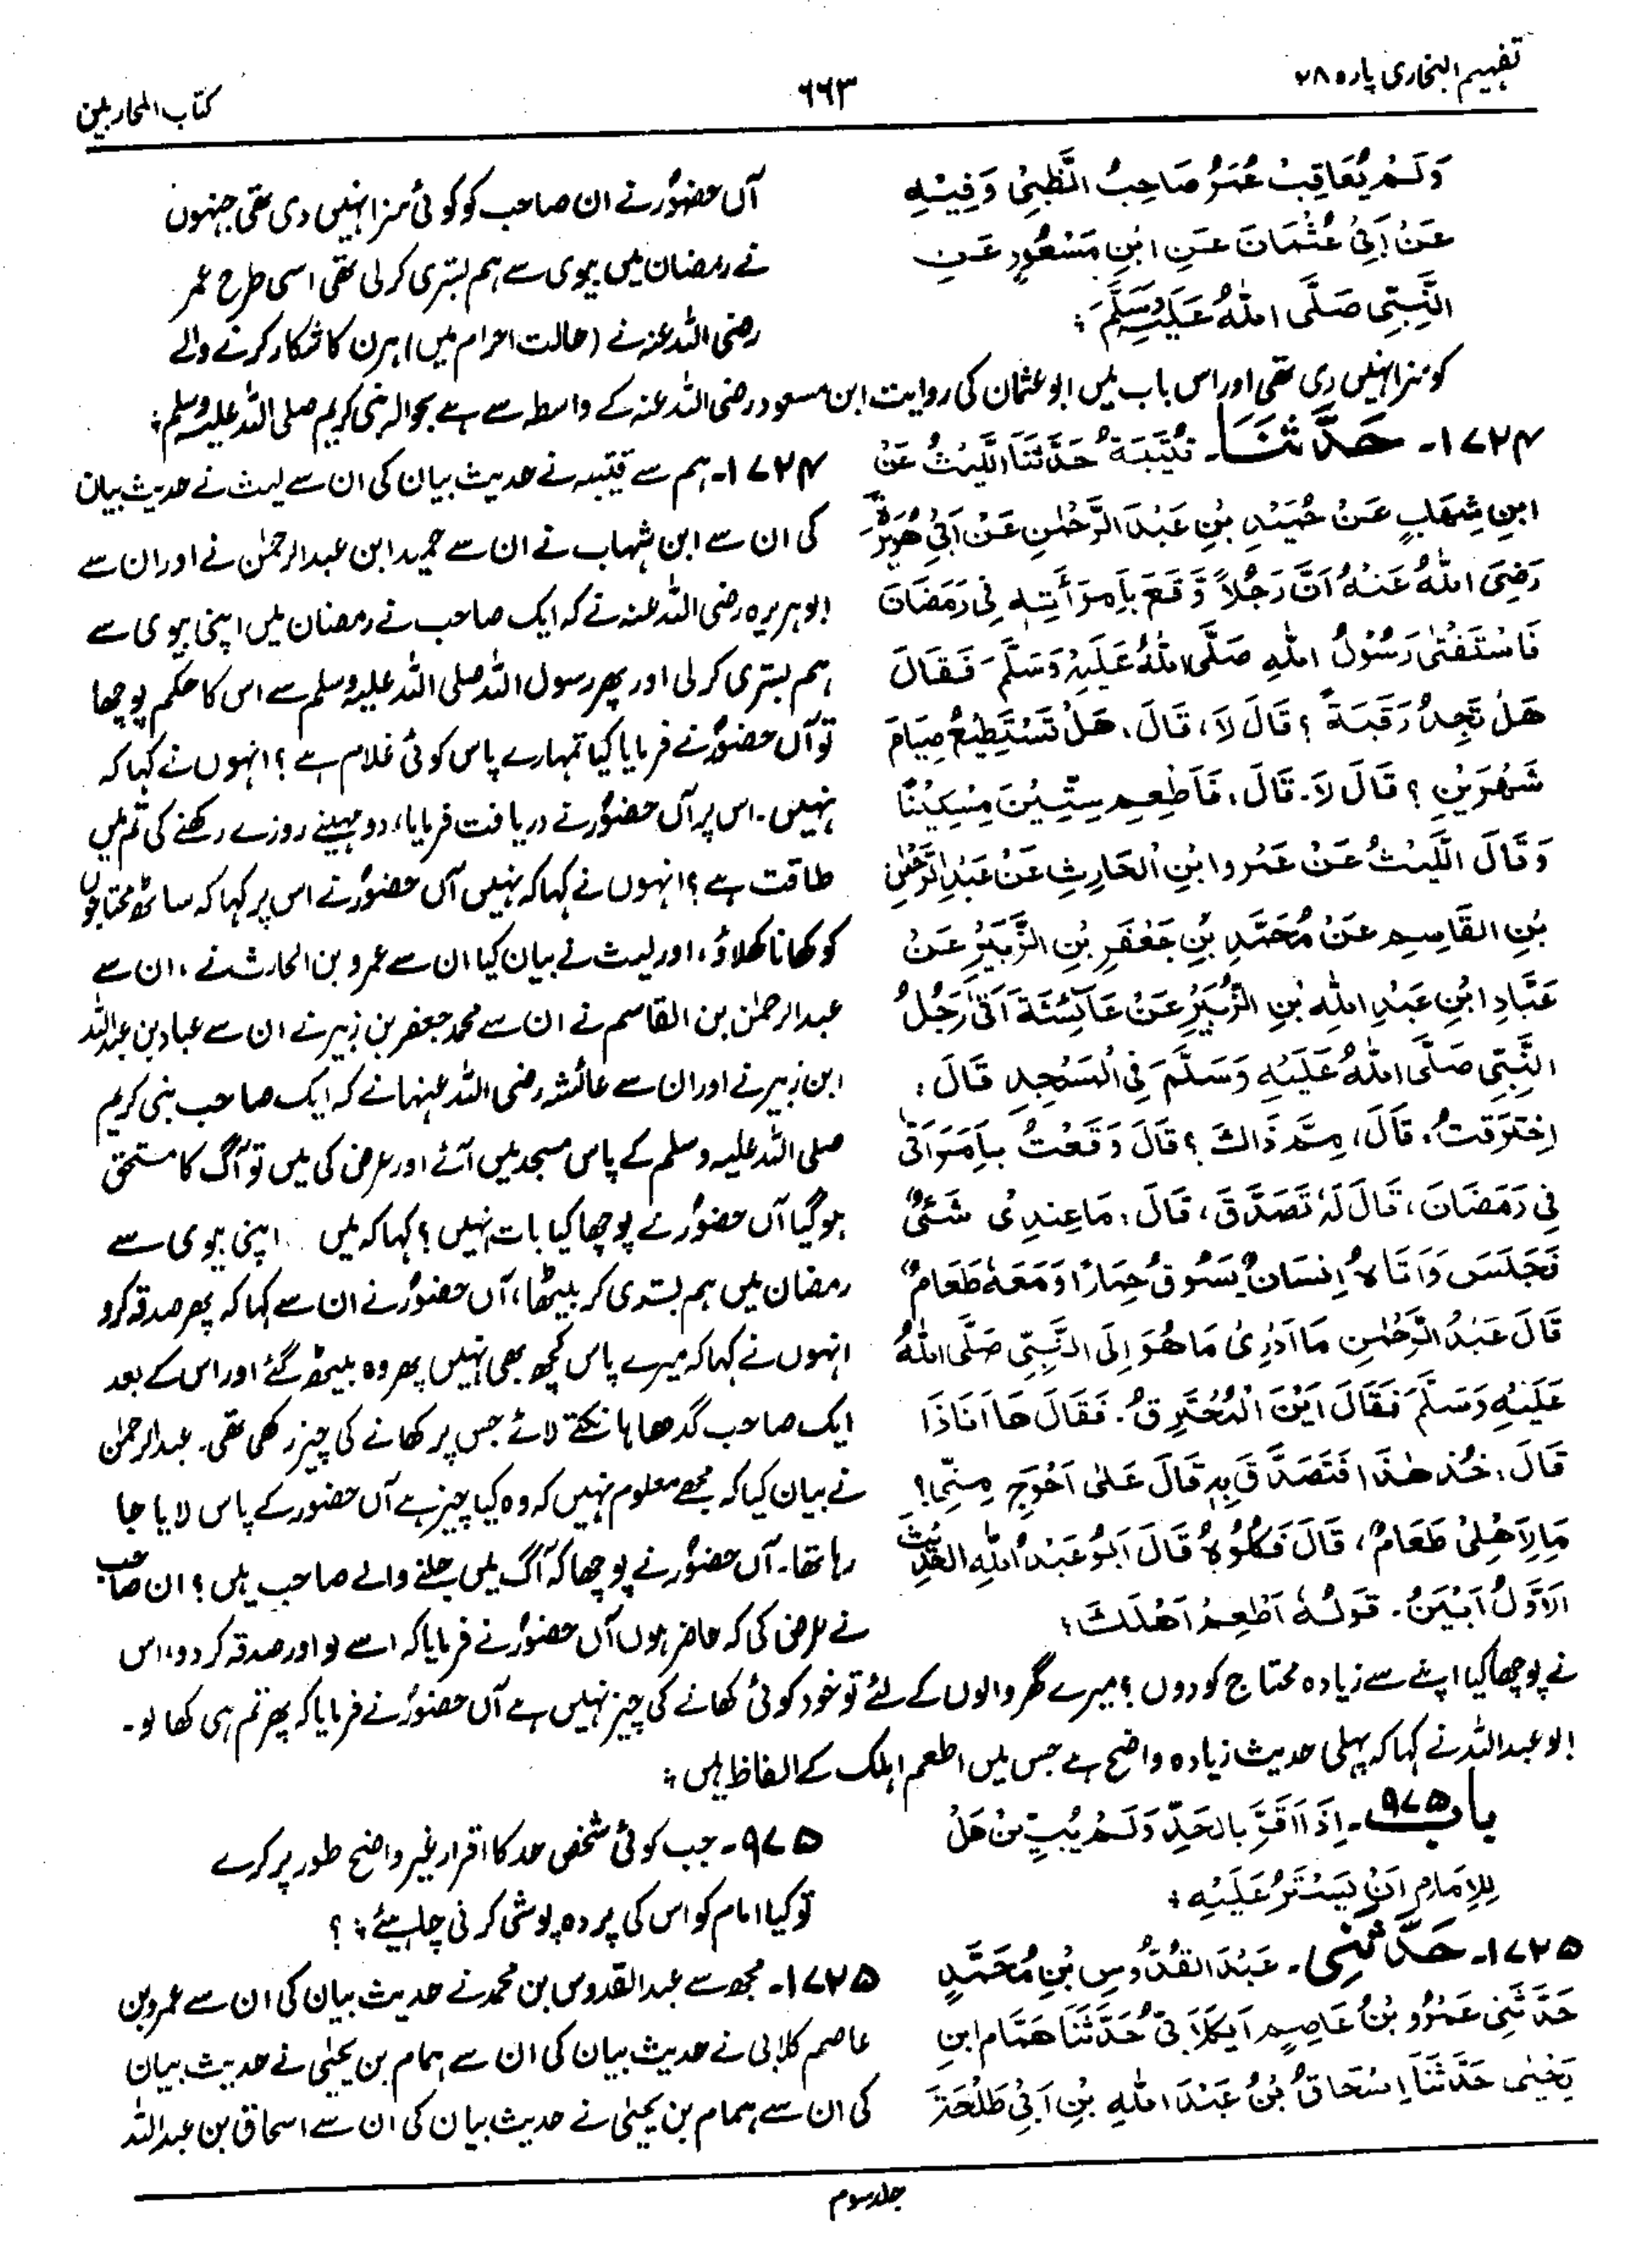 تفہیم البخاری پارہ ۲۸
۶۶۳
کتاب المحاربین
وَلَمْ يُعَاقِبْ عُمَرُ صَاحِبُ الظَّبْیِ وَفِيْهِ
عَنْ اَبِیْ عُثْمَانَ عَنِ ابْنِ مَسْعُوْدٍ عَنِ
النَّبِیِّ صَلَّی اللہُ عَلَيْہِ وَسَلَّمَ ؛
آں حضورؐ نے ان صاحب کو کوئی سزا نہیں دی تھی جنہوں
نے رمضان میں بیوی سے ہم بستری کر لی تھی اسی طرح عمر
رضی اللہ عنہ نے (حالت احرام میں) ہرن کا شکار کرنے والے
کو سزا نہیں دی تھی اور اس باب میں ابو عثمان کی روایت ابن مسعود رضی اللہ عنہ کے واسطہ سے ہے بحوالہ نبی کریم صلی اللہ علیہ وسلم ؛
۱۷۲۴۔ حَدَّثَنَا۔ قُتَيْبَةُ حَدَّثَنَا اللَّيْثُ عَنْ
ابْنِ شِهَابٍ عَنْ حُمَيْدِ بْنِ عَبْدَ الرَّحْمٰنِ عَنْ اَبِیْ هُرَيْرَةَ
رَضِیَ اللہُ عَنْهُ اَنَّ رَجُلاً وَّقَعَ بِاَمْرَأَتِهٖ فِیْ رَمَضَانَ
فَاسْتَفْتٰی رَسُوْلُ اللہِ صَلَّی اللہُ عَلَيْہِ وَسَلَّمَ فَقَالَ
هَلْ تَجِدُ رَقَبَةً ؟ قَالَ لاَ، قَالَ، هَلْ تَسْتَطِيْعُ صِيَامَ
شَهْرَيْنِ ؟ قَالَ لاَ۔ قَالَ، فَاَطْعِمِ سِتِّيْنَ مِسْكِيْنًا
وَقَالَ اللَّيْثُ عَنْ عَمْرِو ابْنِ الْحَارِثِ عَنْ عَبْدِ الرَّحْمٰنِ
بْنِ الْقَاسِمِ عَنْ مُحَمَّدِ بْنِ جَعْفَرِ بْنِ الزُّبَيْرِ عَنْ
عَبَّادِ ابْنِ عَبْدِ اللہِ بْنِ الزُّبَيْرِ عَنْ عَآئِشَةَ اَتٰی رَجُلُ
النَّبِیِّ صَلَّی اللہُ عَلَيْہِ وَسَلَّمَ فِی الْمَسْجِدِ قَالَ :
اِحْتَرَقْتُ، قَالَ، مِمَّ ذَاكَ ؟ قَالَ وَقَعْتُ بِاَمْرَاَتِیْ
فِیْ رَمَضَانَ، قَالَ لَهٗ تَصَدَّقَ، قَالَ، مَا عِنْدِیْ شَئْیٌ
فَجَلَسَ وَاَتَاهُ اِنْسَانٌ يَسُوْقُ حِمَارًا وَمَعَهٗ طَعَامٌ
قَالَ عَبْدُ الرَّحْمٰنِ مَا اَدْرِیْ مَا هُوَ اِلَی النَّبِیِّ صَلَّی اللہُ
عَلَيْہِ وَسَلَّمَ فَقَالَ اَيْنَ الْمُحْتَرِقُ۔ فَقَالَ هَا اَنَا ذَا
قَالَ، خُذْ هٰذَا فَتَصَدَّقَ بِهٖ قَالَ عَلٰی اَحْوَجِ مِنِّیْ ؟
مَا لِاَهْلِیْ طَعَامٌ، قَالَ فَكُلُوْهُ قَالَ اَبُوْ عَبْدُ اللہِ الْحَدِيْثُ
الْاَوَّلُ اَبْيَنُ۔ قَوْلُهٗ اَطْعِمْ اَهْلَكَ ؛
۱۷۲۴۔ ہم سے قتیبہ نے حدیث بیان کی ان سے لیث نے حدیث بیان
کی ان سے ابن شہاب نے ان سے حمید ابن عبد الرحمٰن نے اور ان سے
ابو ہریرہ رضی اللہ عنہ نے کہ ایک صاحب نے رمضان میں اپنی بیوی سے
ہم بستری کر لی اور پھر رسول اللہ صلی اللہ علیہ وسلم سے اس کا حکم پوچھا
تو آں حضورؐ نے فرمایا کیا تمہارے پاس کوئی غلام ہے ؟ انہوں نے کہا کہ
نہیں۔ اس پر آں حضورؐ نے دریافت فرمایا، دو مہینے روزے رکھنے کی تم میں
طاقت ہے ؟ انہوں نے کہا کہ نہیں آں حضورؐ نے اس پر کہا کہ ساٹھ محتاجوں
کو کھانا کھلاؤ، اور لیث نے بیان کیا ان سے عمرو بن الحارث نے، ان سے
عبد الرحمٰن بن القاسم نے ان سے محمد جعفر بن زبیر نے ان سے عباد بن عبد اللہ
ابن زبیر نے اور ان سے عائشہ رضی اللہ عنہا نے کہ ایک صاحب نبی کریم
صلی اللہ علیہ وسلم کے پاس مسجد میں آئے اور عرض کی میں تو آگ کا مستحق
ہو گیا آں حضورؐ نے پوچھا کیا بات نہیں ؟ کہا کہ میں اپنی بیوی سے
رمضان میں ہم بستری کر بیٹھا، آں حضورؐ نے ان سے کہا کہ پھر صدقہ کرو
انہوں نے کہا کہ میرے پاس کچھ بھی نہیں پھر وہ بیٹھ گئے اور اس کے بعد
ایک صاحب گدھا ہانکتے لائے جس پر کھانے کی چیز رکھی تھی۔ عبد الرحمٰن
نے بیان کیا کہ مجھے معلوم نہیں کہ وہ کیا چیز ہے آں حضور کے پاس لایا جا
رہا تھا۔ آں حضورؐ نے پوچھا کہ آگ میں جلنے والے صاحب ہیں ؟ ان صاحب
نے عرض کی کہ حاضر ہوں آں حضورؐ نے فرمایا کہ اسے لو اور صدقہ کر دو، اس
نے پوچھا کیا اپنے سے زیادہ محتاج کو دوں ؟ میرے گھر والوں کے لئے تو خود کوئی کھانے کی چیز نہیں ہے آں حضورؐ نے فرمایا کہ پھر تم ہی کھا لو۔
ابو عبد اللہ نے کہا کہ پہلی حدیث زیادہ واضح ہے جس میں اطعم اہلک کے الفاظ ہیں ؛
باب ۹۷۵۔ اِذَا اَقَرَّ بِالْحَدِّ وَلَمْ يُبَيِّنْ هَلْ
لِلْاِمَامِ اَنْ يَسْتَرُ عَلَيْهِ ؛
۹۷۵۔ جب کوئی شخص حد کا اقرار غیر واضح طور پر کرے
تو کیا امام کو اس کی پردہ پوشی کرنی چاہیئے ؛ ؟
۱۷۲۵۔ حَدَّثَنِی۔ عَبْدَ الْقُدُّوْسِ بْنِ مُحَمَّدٍ
حَدَّثَنِیْ عَمْرُو بْنُ عَاصِمِ اَیْكَلاَبِیُّ حَدَّثَنَا هَمَّام ابْنِ
يَحْيٰی حَدَّثَنَا اِسْحَاقُ بْنُ عَبْدَ اللہِ بْنِ اَبِیْ طَلْحَةَ
۱۷۲۵۔ مجھ سے عبد القدوس بن محمد نے حدیث بیان کی ان سے عمرو بن
عاصم کلابی نے حدیث بیان کی ان سے ہمام بن یحیٰی نے حدیث بیان
کی ان سے ہمام بن یحیٰی نے حدیث بیان کی ان سے اسحاق بن عبد اللہ
جلد سوم